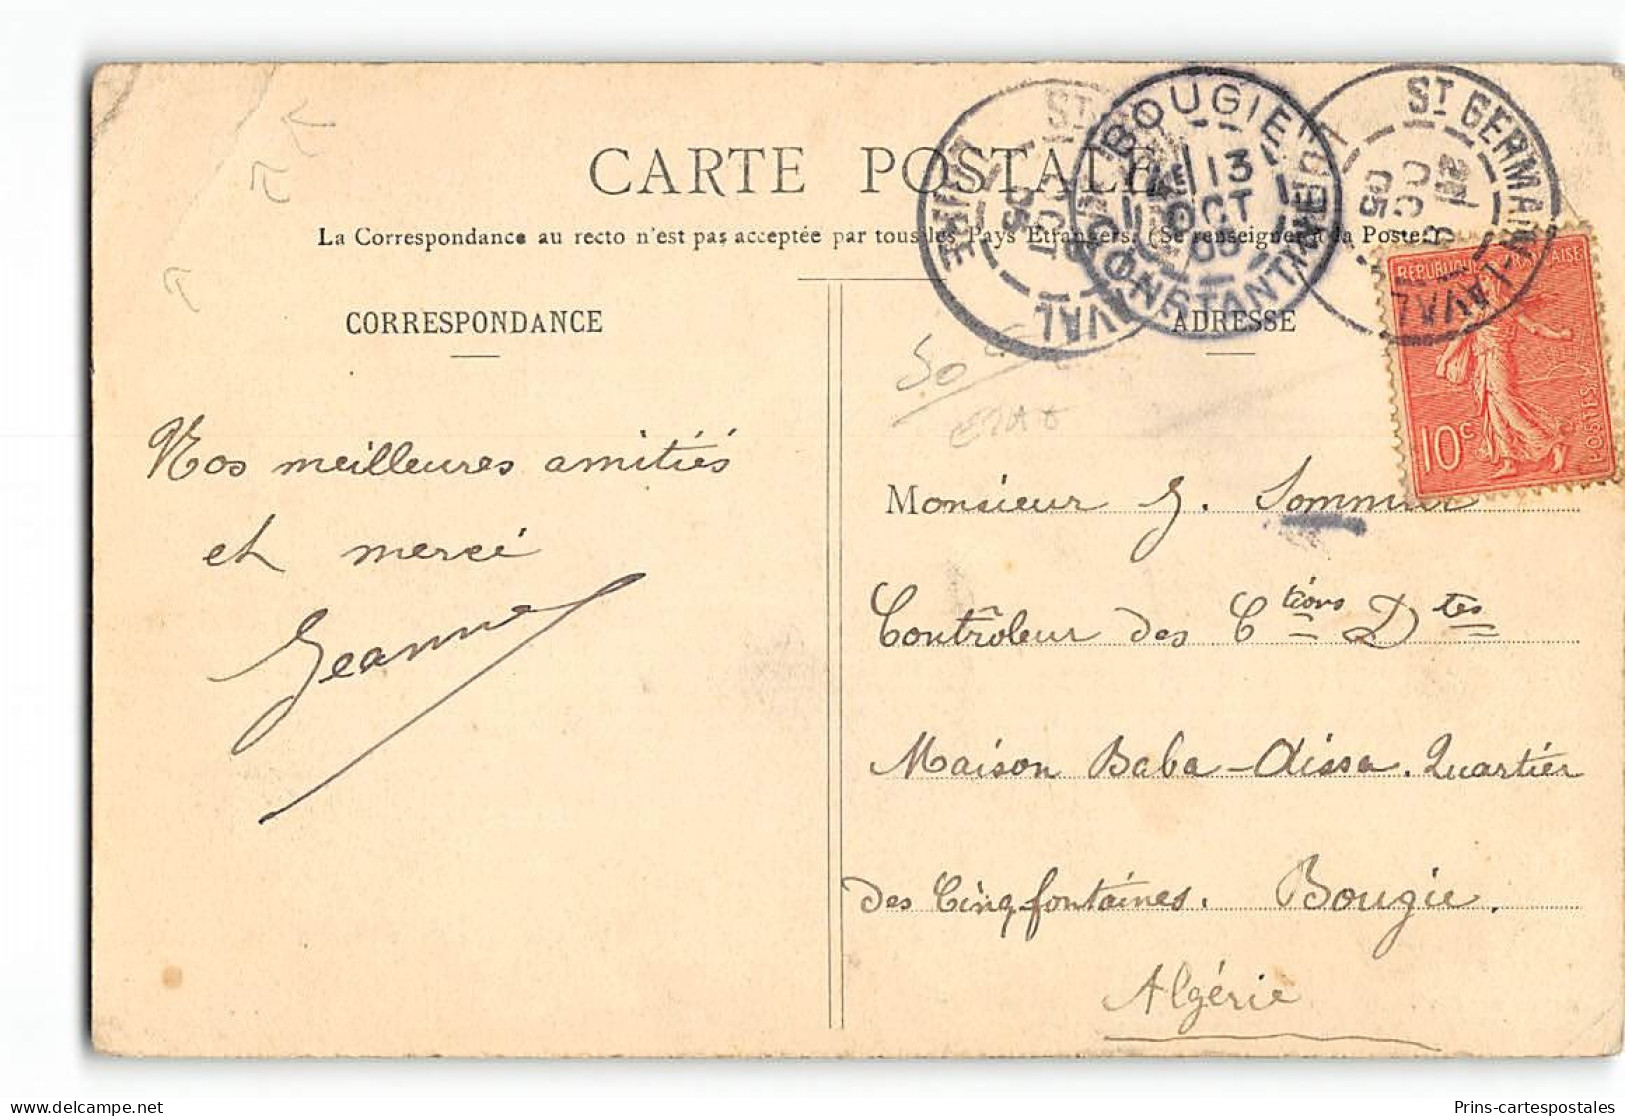 CARTE POSTALE
La Correspondance au recto n'est pas acceptée par tous les Pays Etrangers. (Se renseigner à la Poste.)
BOUGIE
13
OCT
05
CONSTANTINE
ST GERMAIN-LAVAL
OCT
05
LOIRE
CORRESPONDANCE
ADRESSE
REPUBLIQUE FRANÇAISE
10c
POSTES
50
Nos meilleures amitiés
et merci
Jeanne
Monsieur G. Sommier
Contrôleur des Ctions Dtes
Maison Baba-Aissa. Quartier
des Cinq fontaines. Bougie.
Algérie
delcampe.net
Prins-cartespostales